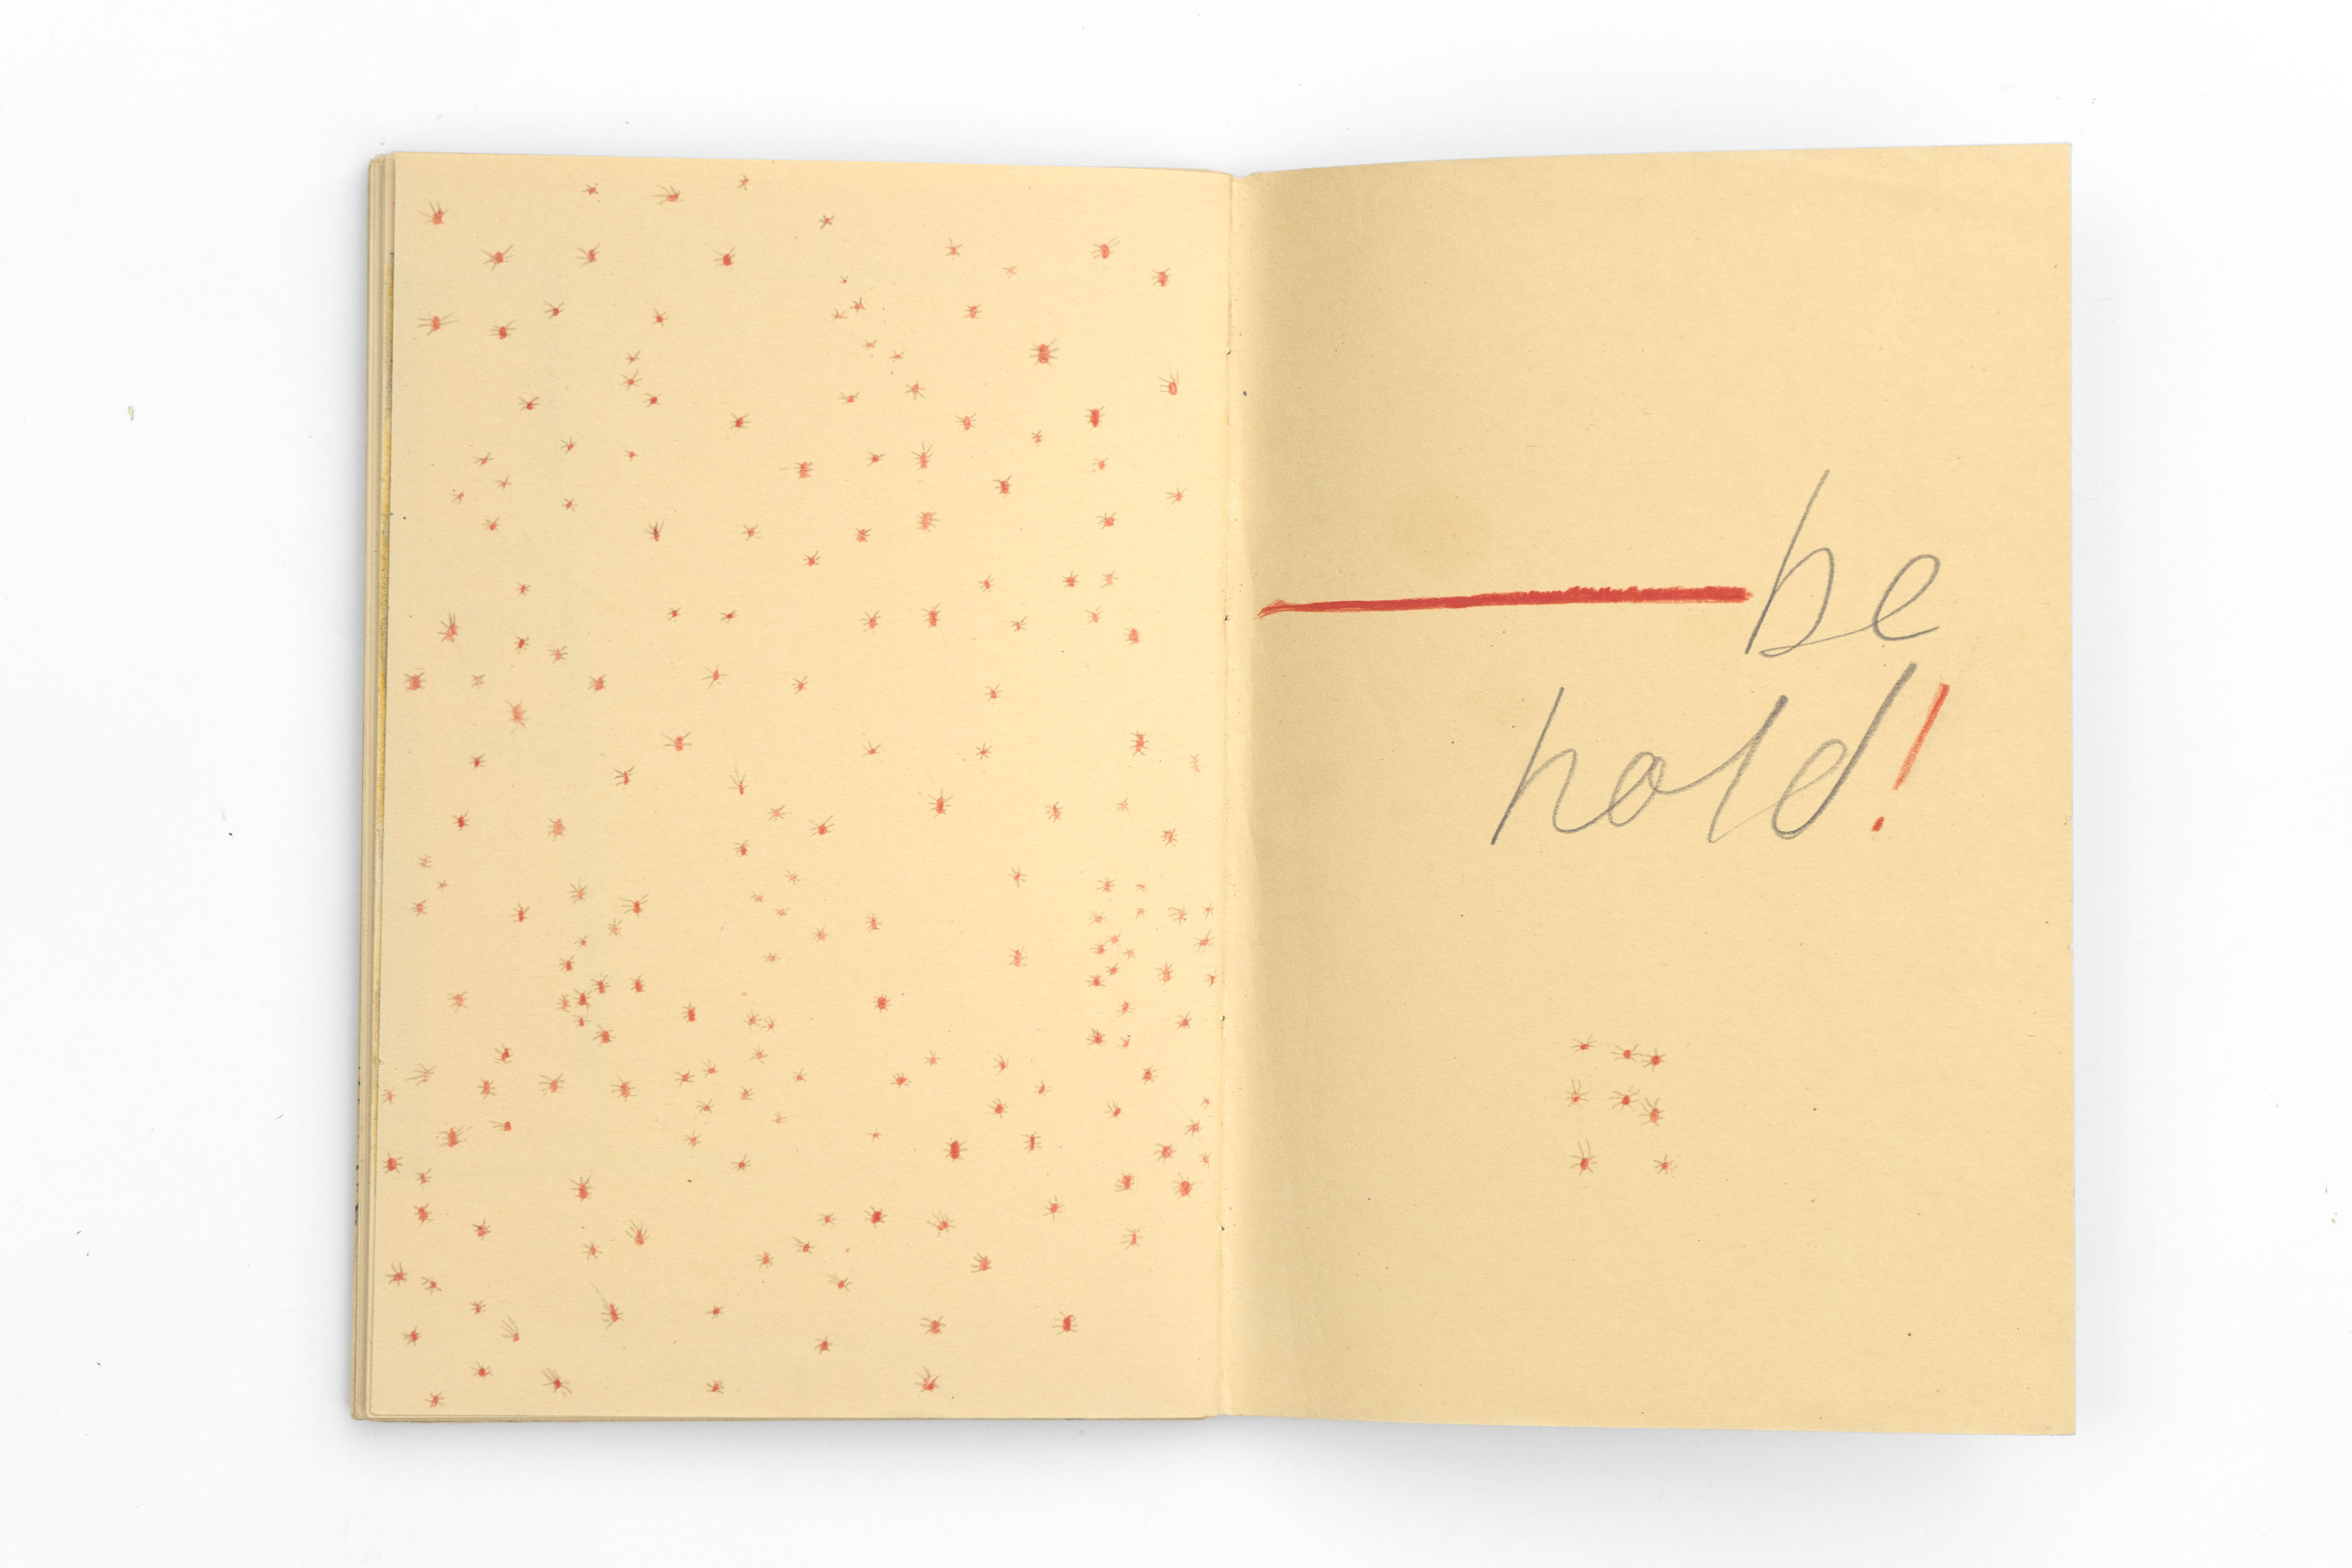 be
hold!